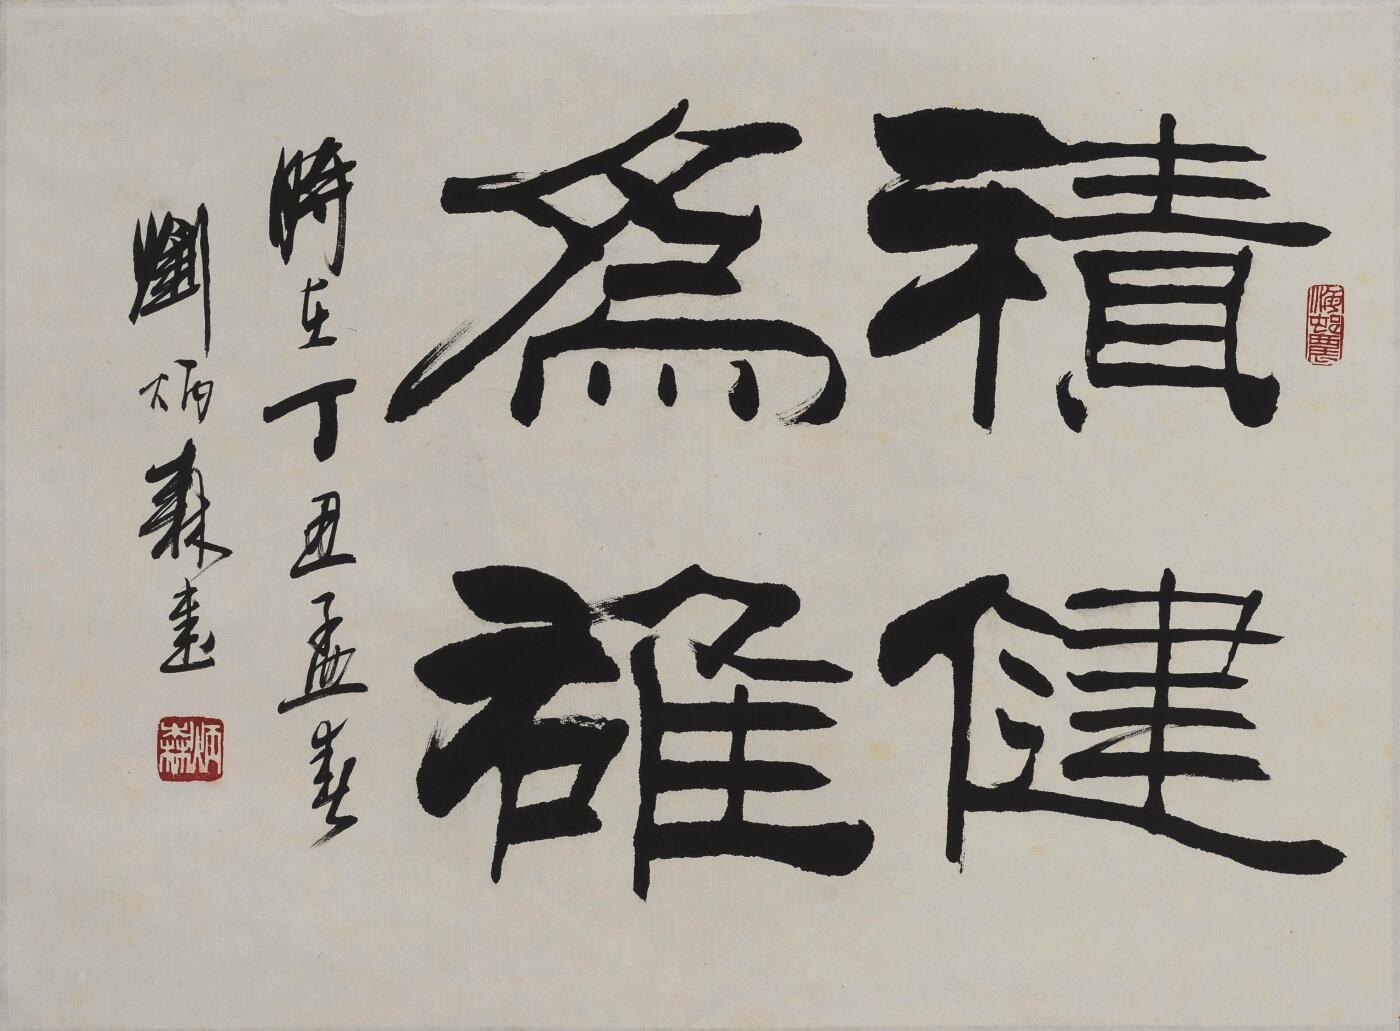 積健
為雄
時在丁丑孟春
劉炳森書
炳森